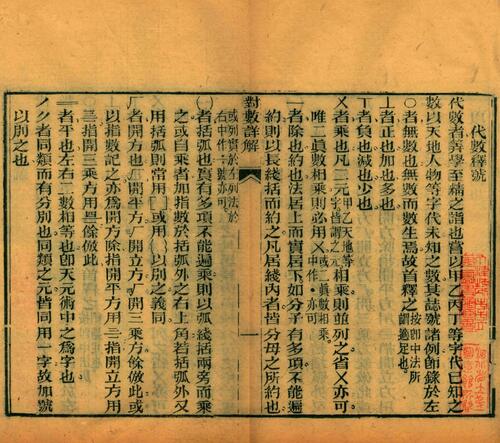 代數釋號
代數者算學至精之詣也嘗以甲乙丙丁等字代已知之
數以天地人物等字代未知之數其誌號諸例節錄於左
○者無數也無數而數生焉故首釋之按即中法所謂適足也
⊥者正也加也多也
丅者負也減也少也
乂者乘也凡二元字甲乙天地等字皆謂之元相乘則並列之省乂亦可
唯二真數相乘則必用乂或二真數相乘中作·亦可
一者除也約也法居上而實居下如分子有多項不能遍
約則以長綫括而約之凡居綫內者皆分母之所約也
對數詳解
一
或列實於左列法於右中作：號亦可
()者括弧也實有多項不能遍乘則以弧綫括兩旁而乘
之或自乘者加指數於括弧外之右上角若括弧外又
用括弧則常用[]或用{}以別之義同
厂者開方也厂指開平方三厂開三乘方餘倣此或
以指數記之亦爲開方除指開平方用二指開立方用
三指開三乘方用四餘倣此
＝者平也左右二數相等也卽天元術中之爲字也
者同類而有分別也同類之元皆同用一字故加號
以別之也